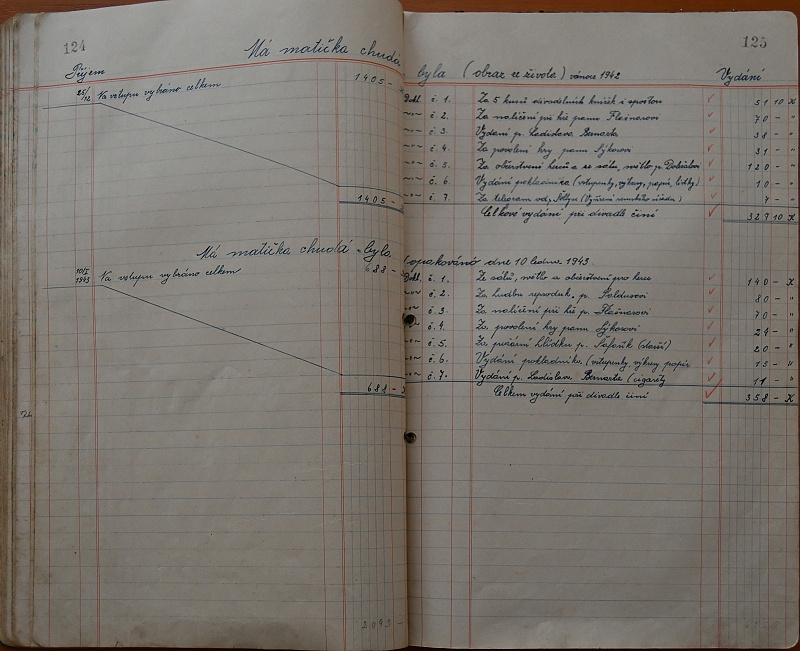 124
Má matička chudá
Příjem
25/12 Na vstupu vybráno celkem 1405 -
1405 -
Má matička chudá byla
10/I 1943 Na vstupu vybráno celkem 688 -
688 -
2093 -
125
byla (obraz ze života) vánoce 1942
Vydání
Dokl. č. 1. Za 5 kusů divadelních knížek i s poštou 51 10 K
-"- č. 2. Za nalíčení při hře panu Flešnerovi 70 - "
-"- č. 3. Vydání p. Ladislava 38 - "
-"- č. 4. Za povolení hry panu Sýkorovi 31 - "
-"- č. 5. Za občerstvení herců a ze sálu, světlo p. 120 - "
-"- č. 6. Vydání pokladníka (vstupenky, výkazy, papír, lístky) 10 - "
-"- č. 7. Za telegram 7 - "
Celkové vydání při divadle činí 327 10 K
(opakováno dne 10 ledna 1943
Dokl. č. 1. Z sálů, světlo a občerstvení pro herce 140 - K
-"- č. 2. Za hudbu reproduk. p. 80 - "
-"- č. 3. Za nalíčení při hře p. Flešnerovi 70 - "
-"- č. 4. Za povolení hry panu Sýkorovi 24 - "
-"- č. 5. Za požární hlídku p. Šafařík (starší) 20 - "
-"- č. 6. Vydání pokladníka (vstupenky výkazy papír 13 - "
-"- č. 7. Vydání p. Ladislava (cigarety 11 - "
Celkem vydání při divadle činí 358 - K